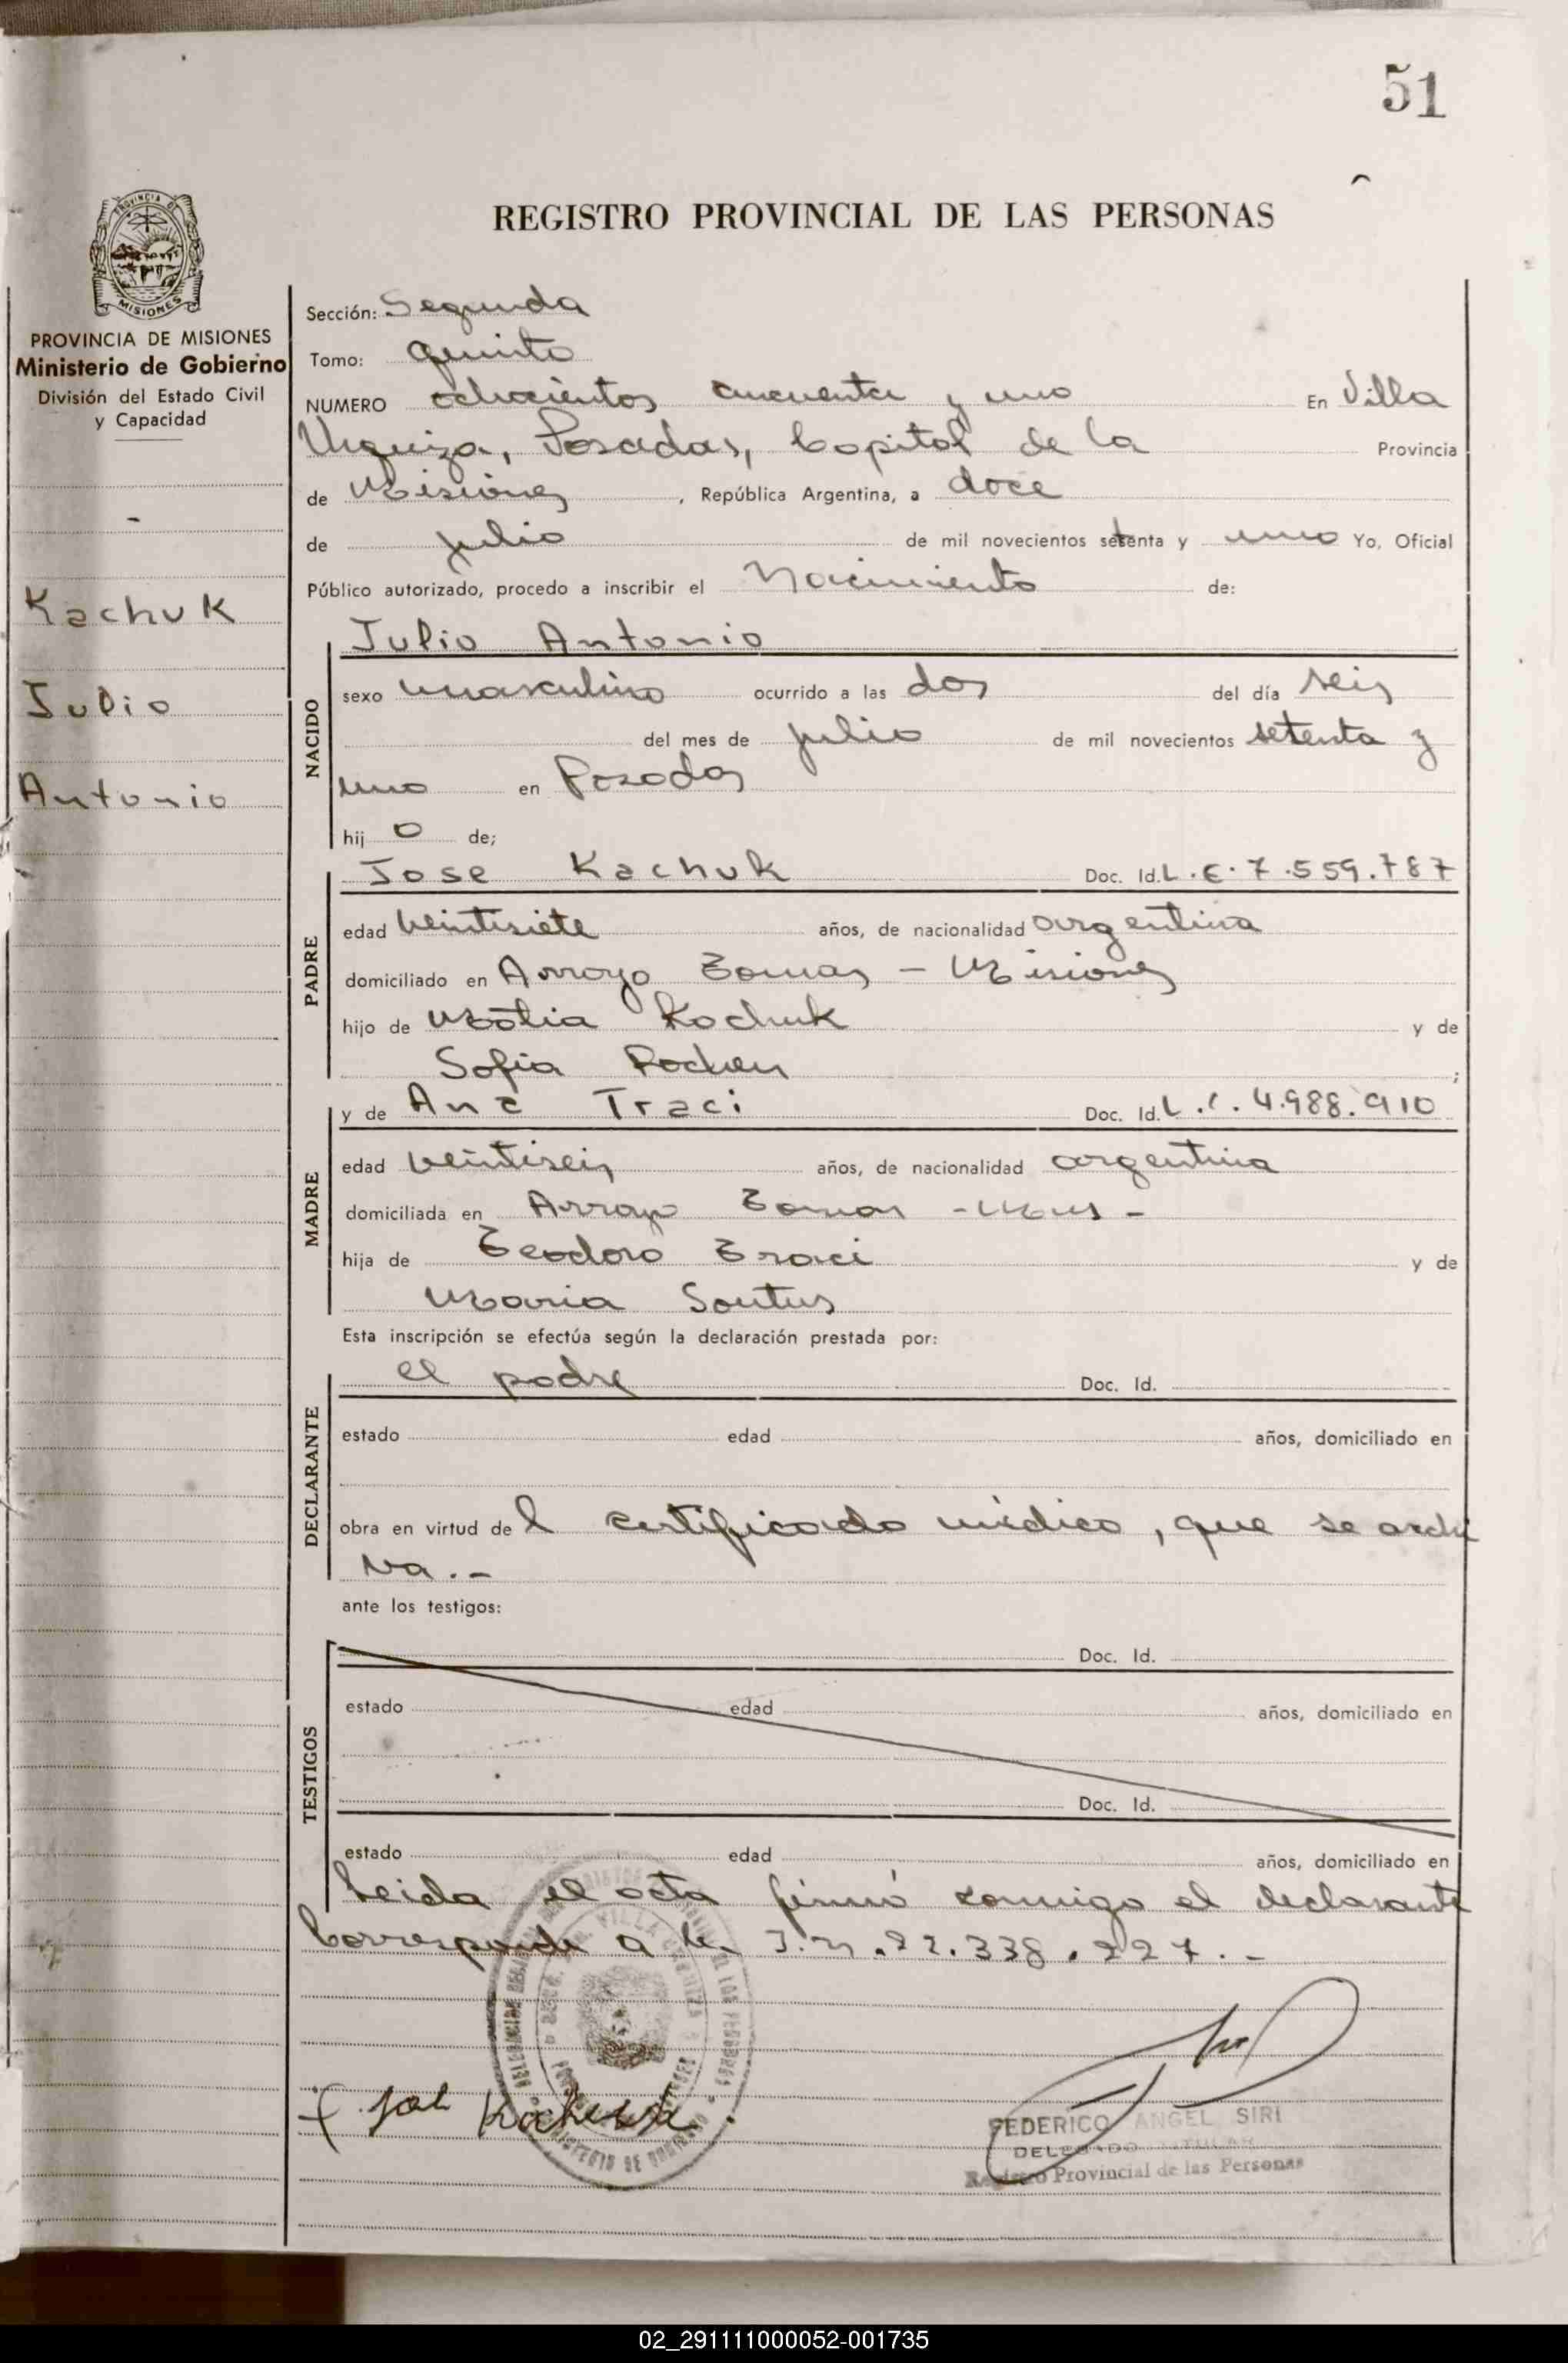 51
REGISTRO PROVINCIAL DE LAS PERSONAS
PROVINCIA DE
MISIONES
PROVINCIA DE MISIONES
Ministerio de Gobierno
División del Estado Civil
y Capacidad
Kachuk
Julio
Antonio
Sección: Segunda
Tomo: quinto
NUMERO ochocientos cincuenta y uno En Villa
Urquiza, Posadas, Capital de la Provincia
de Misiones, República Argentina, a doce
de julio de mil novecientos setenta y uno Yo, Oficial
Público autorizado, procedo a inscribir el Nacimiento de:
Julio Antonio
NACIDO
sexo masculino ocurrido a las dos del día seis
del mes de julio de mil novecientos setenta y
uno en Posadas
hij o de;
PADRE
Jose Kachuk Doc. Id. L.E. 7.559.787
edad veintisiete años, de nacionalidad argentina
domiciliado en Arroyo Tomas - Misiones
hijo de Kachuk y de
Sofia ;
MADRE
y de Ana Traci Doc. Id. L.C. 4.988.910
edad veintiseis años, de nacionalidad argentina
domiciliada en Arroyo Tomas - Mnes -
hija de Teodoro Traci y de
Maria
Esta inscripción se efectúa según la declaración prestada por:
DECLARANTE
el padre Doc. Id.
estado edad años, domiciliado en
obra en virtud de l certificado médico, que se archi
va.-
ante los testigos:
TESTIGOS
Doc. Id.
estado edad años, domiciliado en
Doc. Id.
estado edad años, domiciliado en
Leida el acta firmó conmigo el declarante
Corresponde a la I.N. 22.338.227.-
VILLA URQUIZA
Kachuk
FEDERICO ANGEL SIRI
DELEGADO TITULAR
Registro Provincial de las Personas
02_291111000052-001735